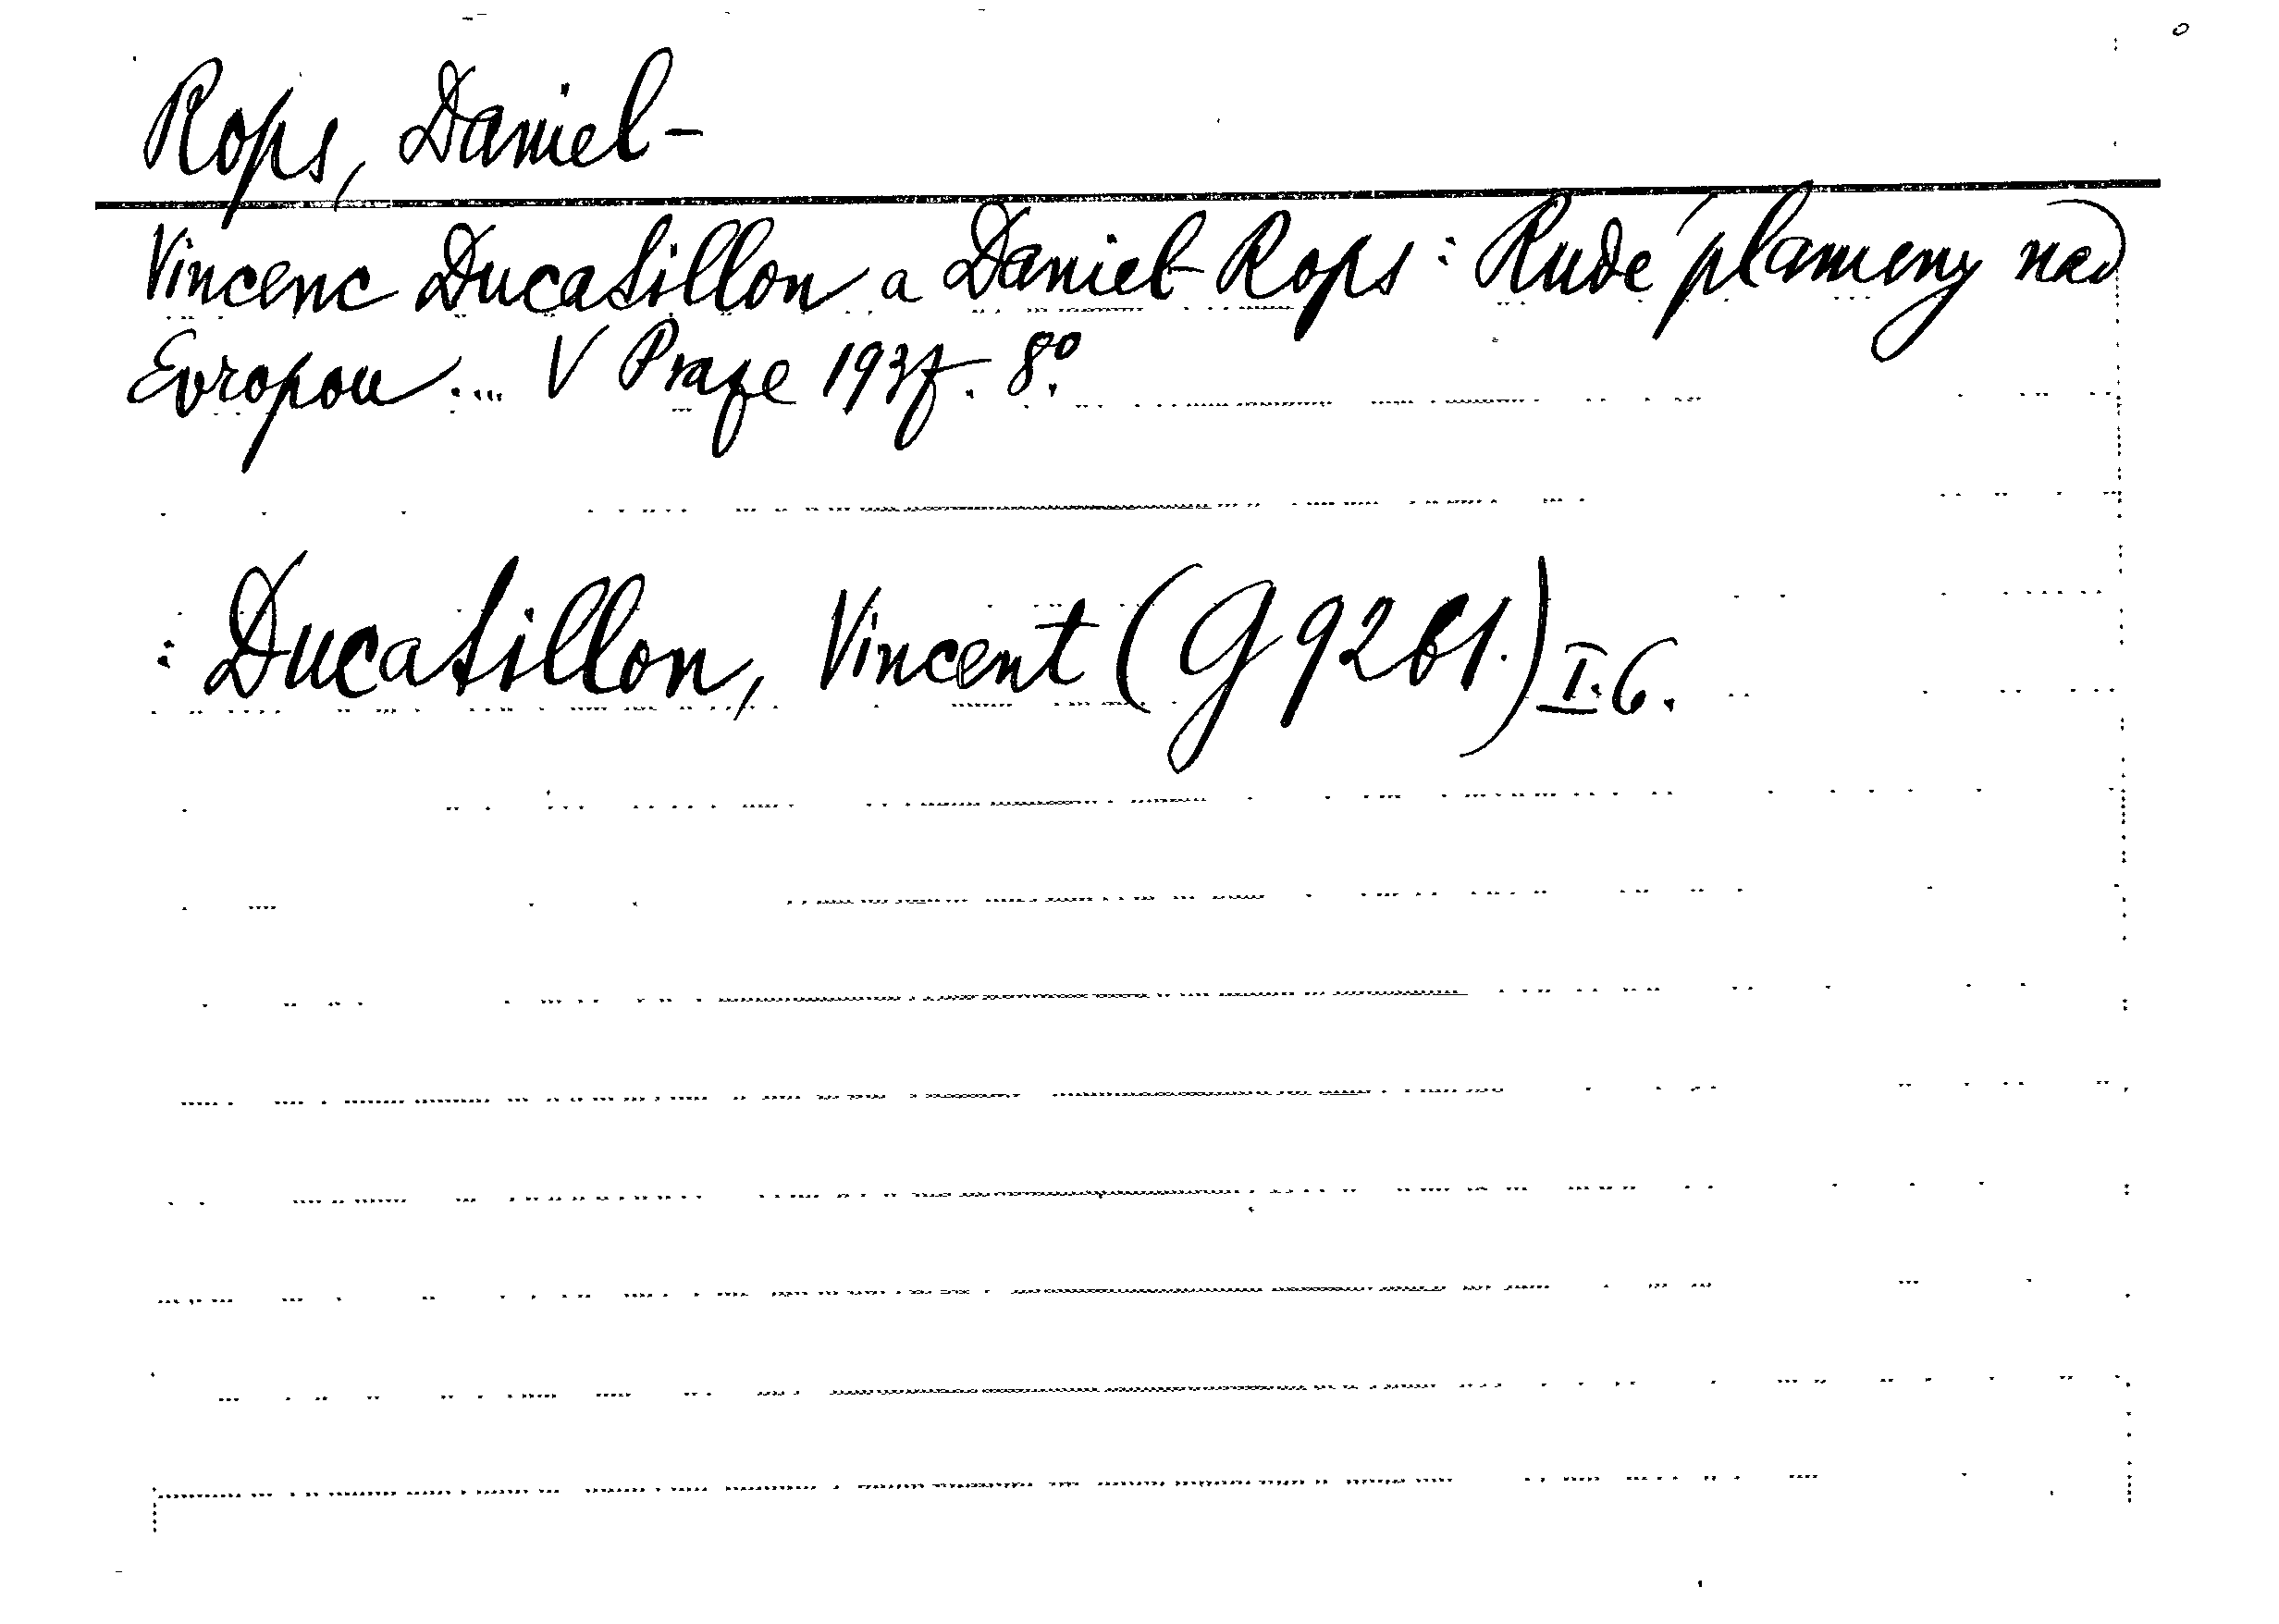 Rops, Daniel-
Vincenc Ducatillon a Daniel-Rops: Rudé plameny nad
Evropou... V Praze 1937. 8º.
: Ducatillon, Vincent (G 9261.) I.6.